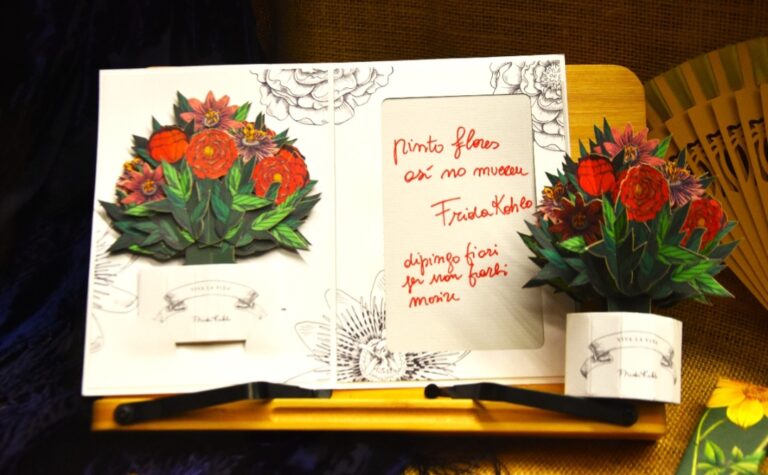 VIVA LA VIDA
Frida Kahlo
pinto flores
así no mueren
Frida Kahlo
dipingo fiori
per non farli
morire
VIVA LA VIDA
Frida Kahlo